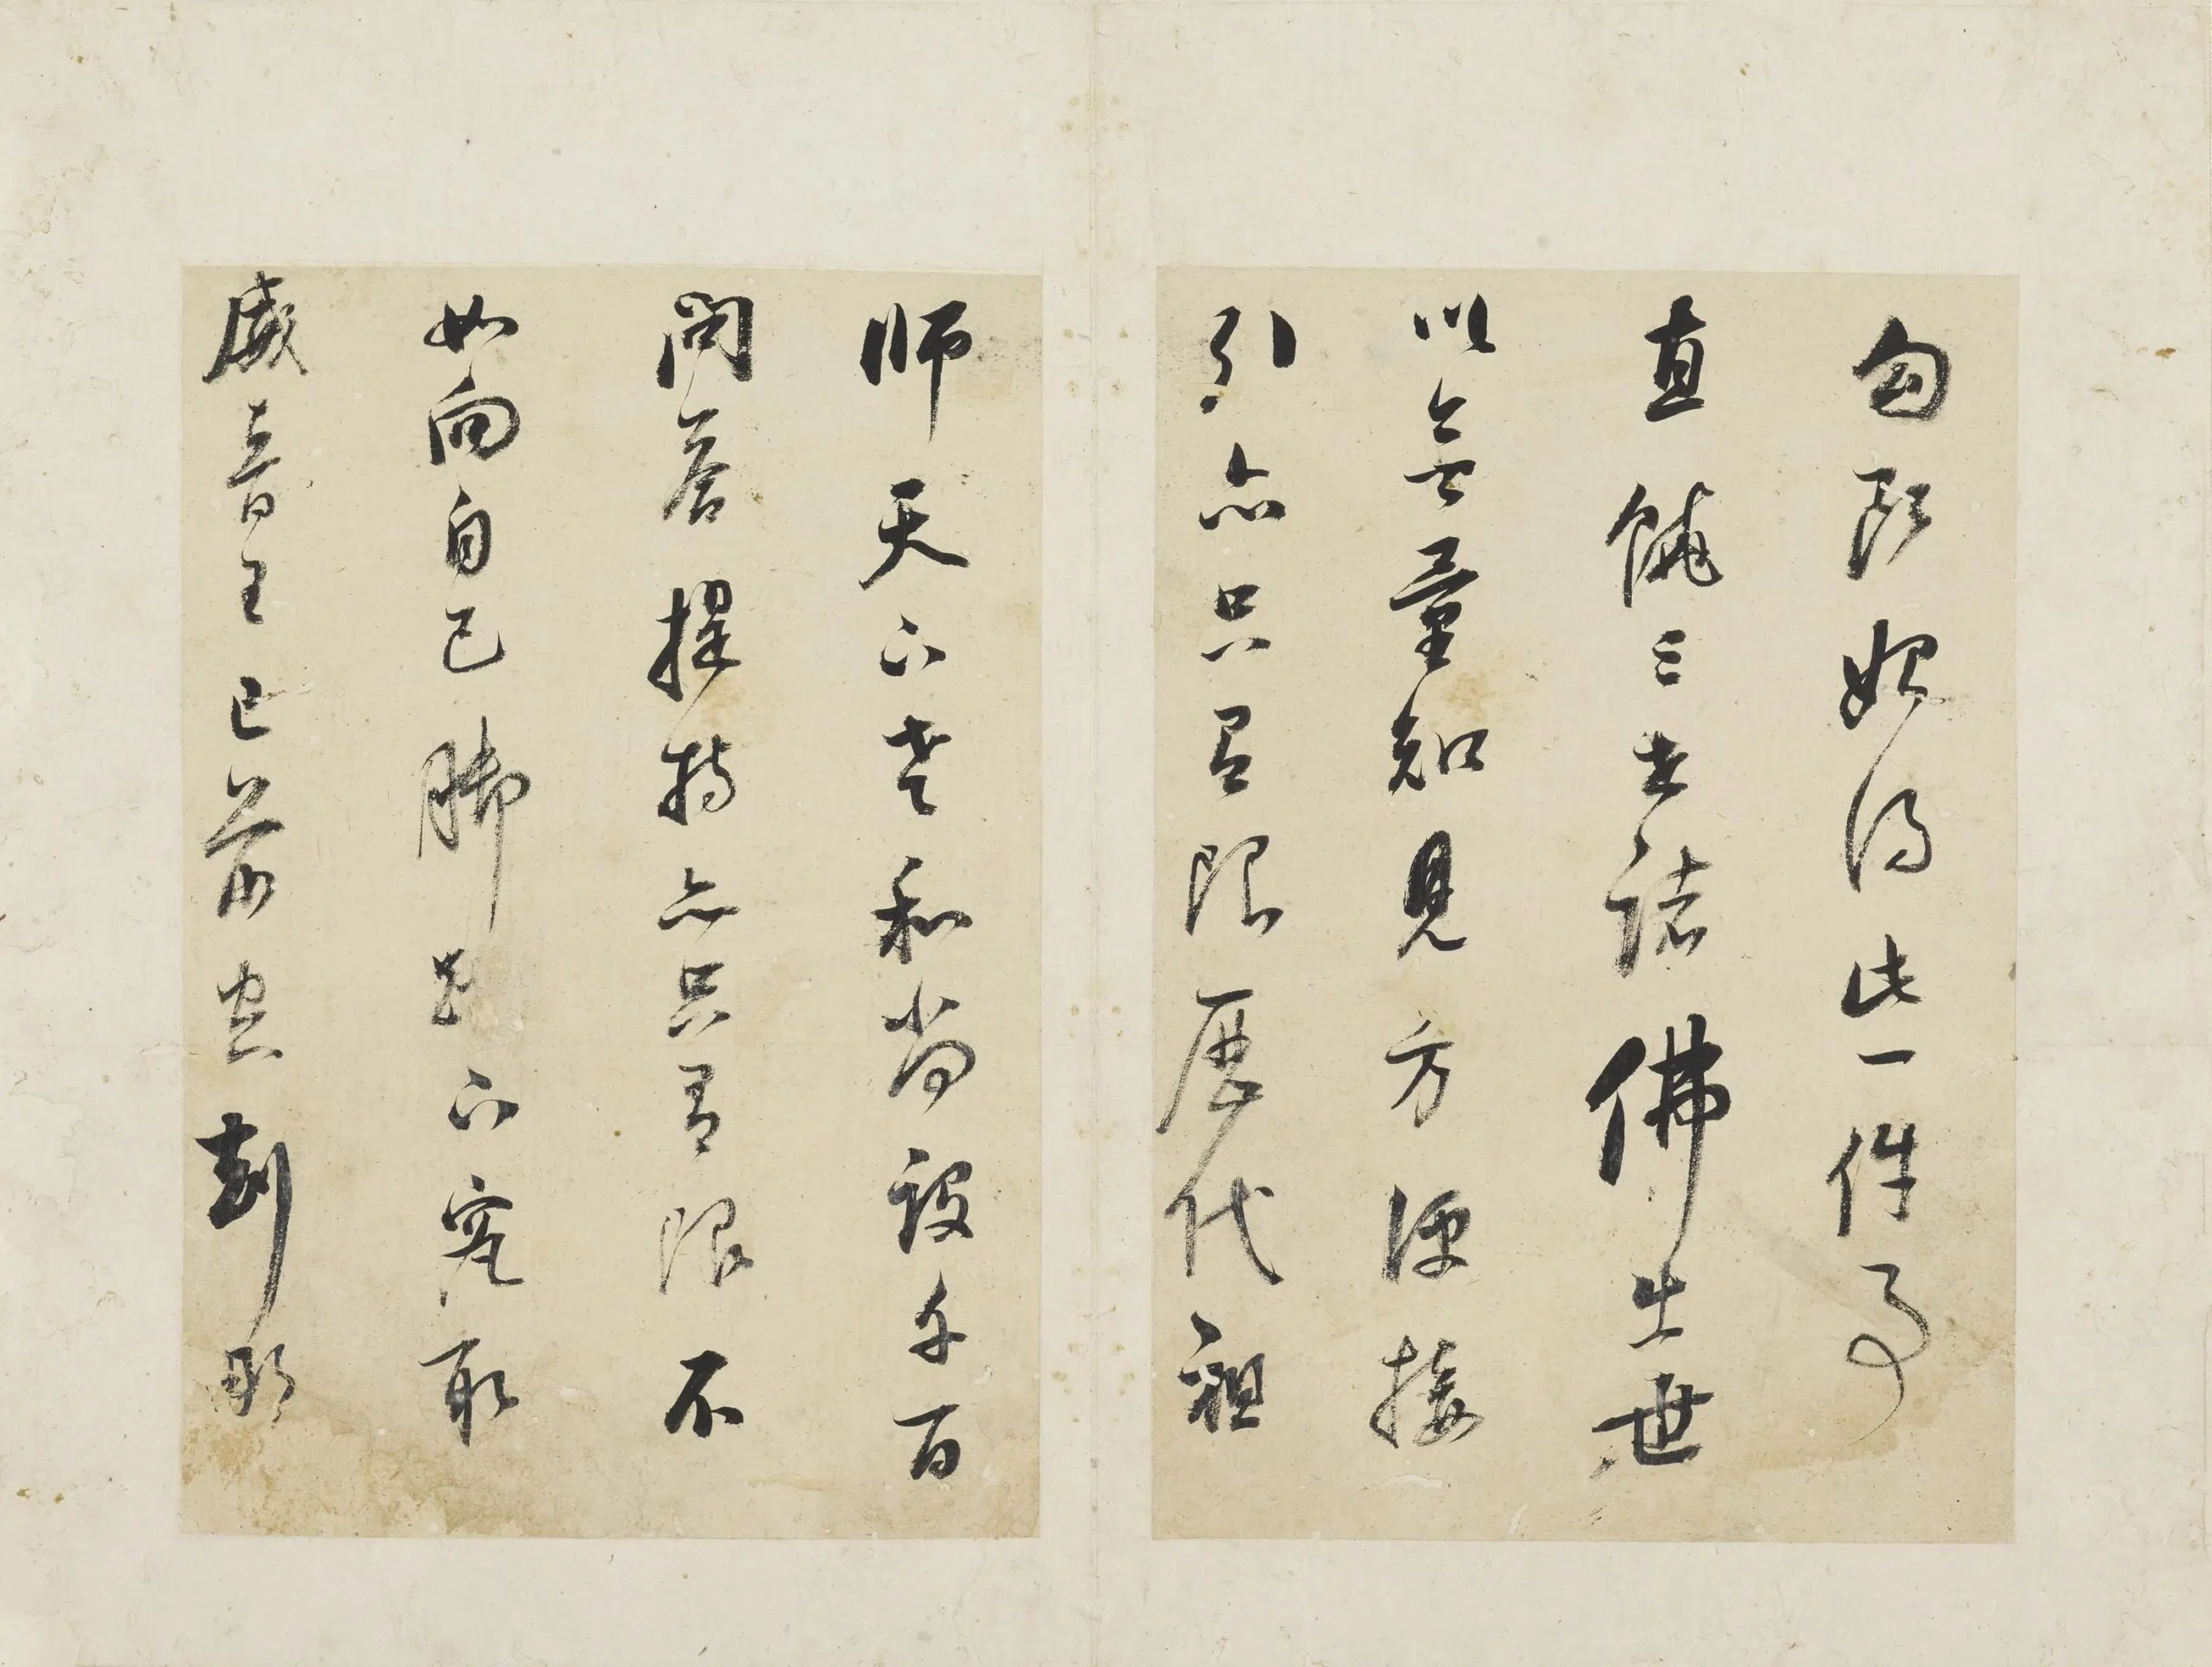 段始得此一件事
直饒三世諸佛出世
以無量知見方便接
引亦只有限歷代祖
師天下老和尚設千百
問答提持亦只有限不
如向自己脚跟下究取
威音王已前空劫那